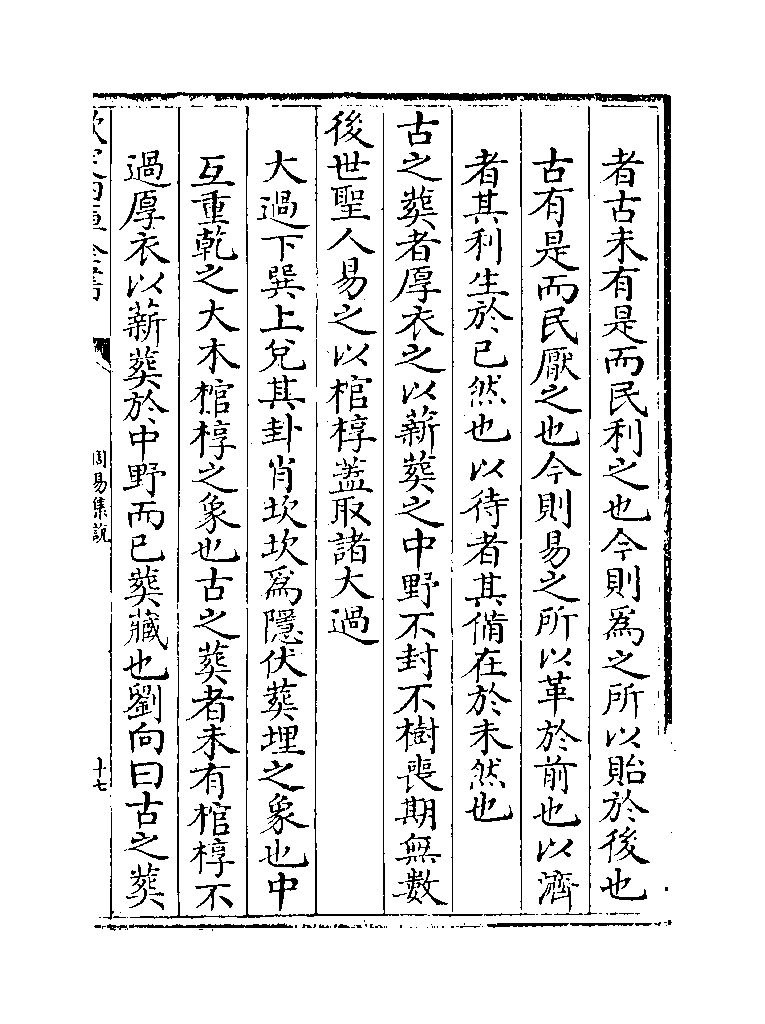 者古未有是而民利之也今則爲之所以貽於後也
古有是而民厭之也今則易之所以革於前也以濟
者其利生於已然也以待者其備在於未然也
古之葬者厚衣之以薪葬之中野不封不樹喪期無數
後世聖人易之以棺椁蓋取諸大過
大過下巽上兌其卦肖坎坎爲隱伏葬埋之象也中
互重乾之大木棺椁之象也古之葬者未有棺椁不
過厚衣以薪葬於中野而已葬藏也劉向曰古之葬
欽定四庫全書
周易集說
十七